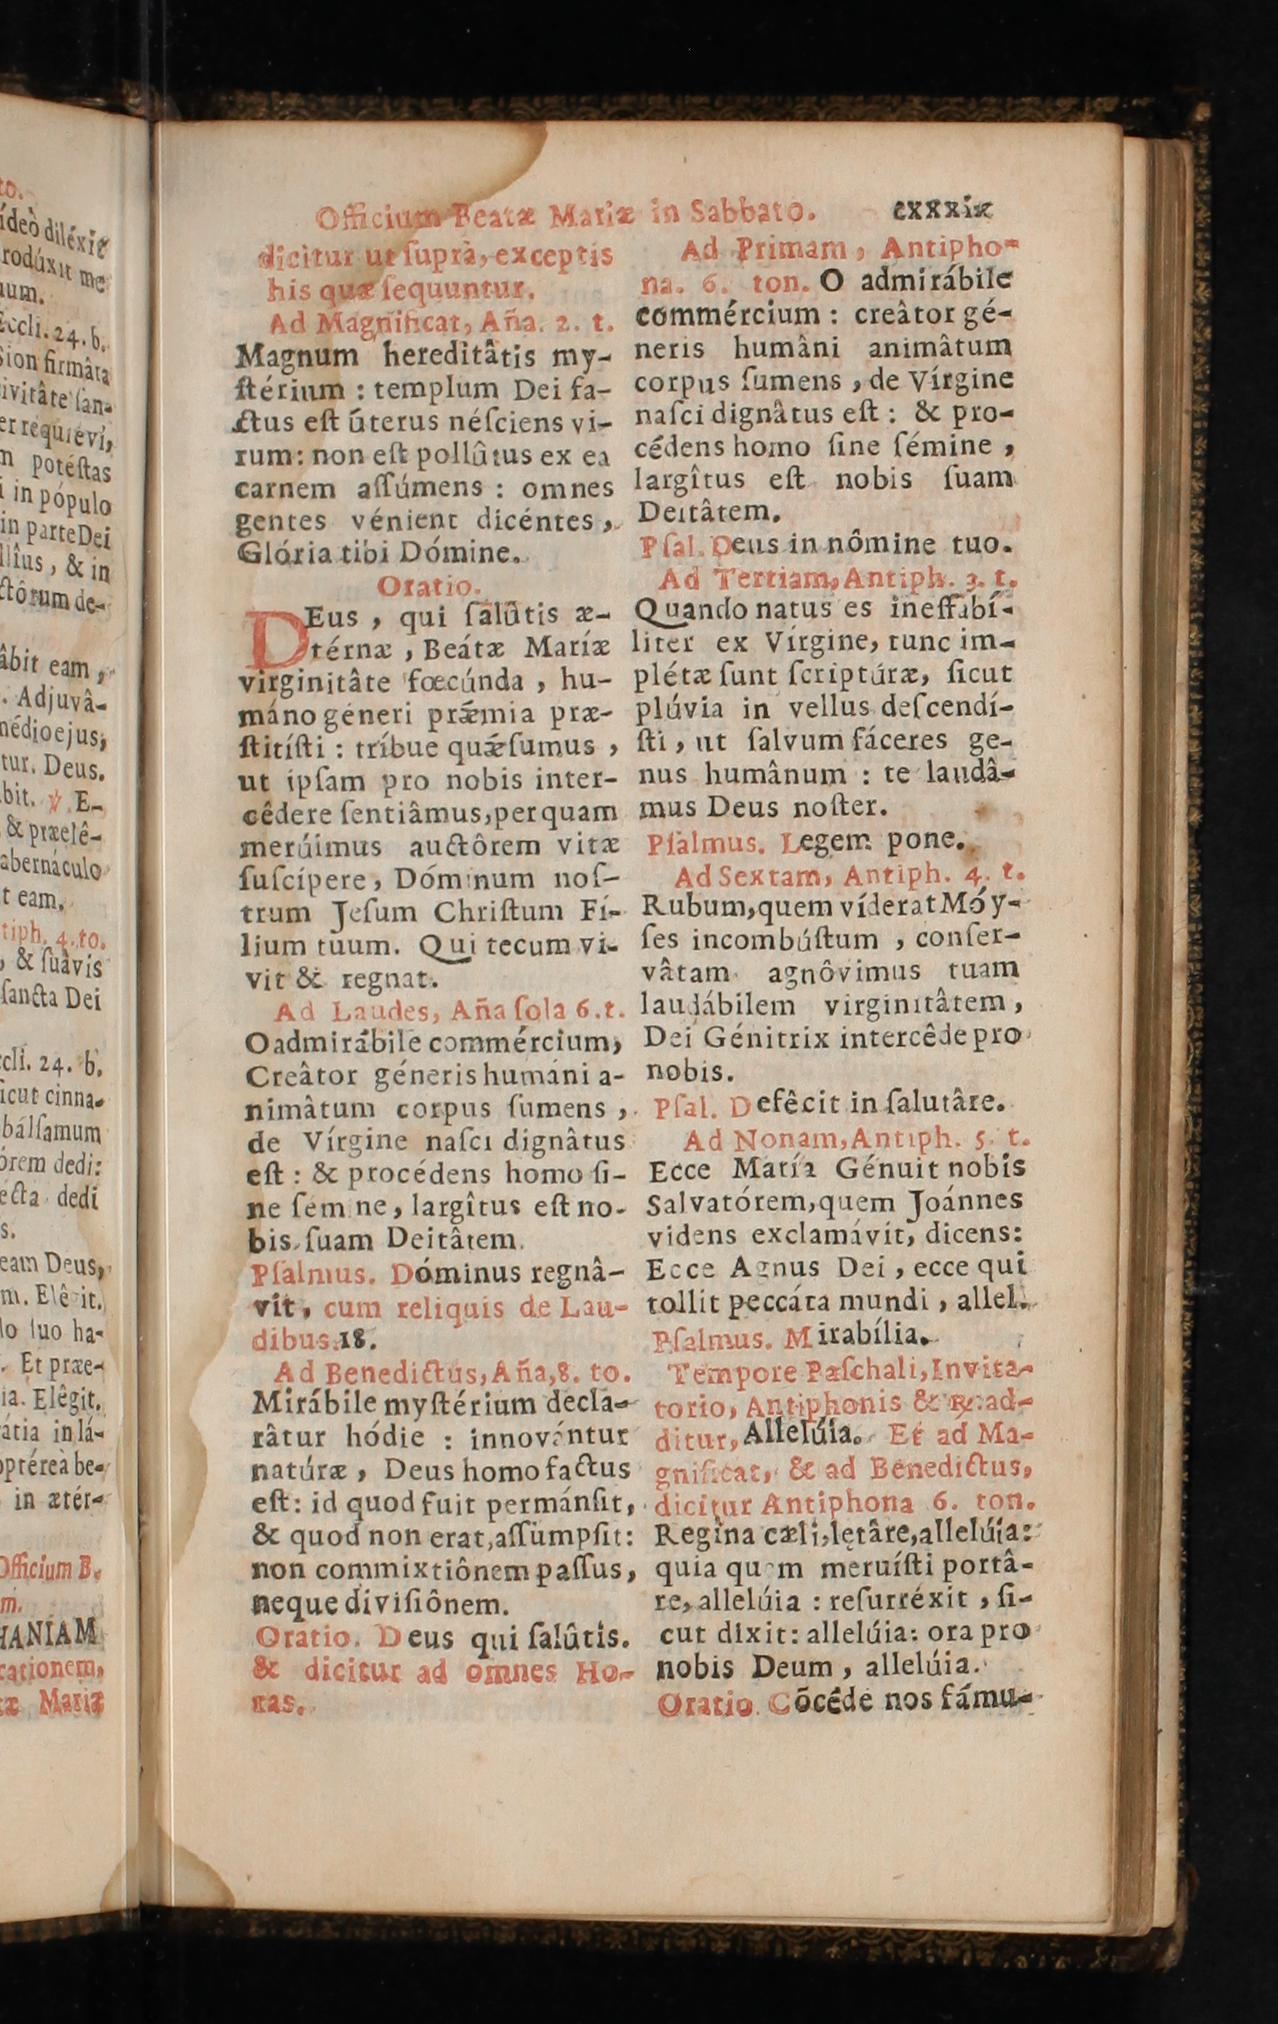 to.
ídeò diléxit
rodúxit me
ium.
Eccli. 24. b.
Sion firmâta
ivitâte ſan-
er requiévi,
n potéſtas
i in pópulo
in parte Dei
llîus, & in
ctôrum de-
âbit eam,
. Adjuvâ-
médio ejus,
tur. Deus.
bit. ℣ E-
& præelê-
abernáculo
t eam.
tiph. 4. to.
, & ſuâvis
ſancta Dei
ccli. 24. b.
icut cinna-
bálſamum
orem dedi:
ecta dedi
s.
eam Deus,
m. Elêgit.
lo ſuo ha-
. Et præe-
ia. Elêgit.
átia in lá-
optéreà be-
in ætér-
Officium B.
m.
HANIAM
rationem,
æ Mariæ
Officium Beatæ Mariæ in Sabbato. cxxxix
dicitur ut ſuprà, exceptis
his quæ ſequuntur.
Ad Magnificat, Aña. 2. t.
Magnum hereditâtis my-
ſtérium : templum Dei fa-
ctus eſt úterus néſciens vi-
rum: non eſt pollûtus ex ea
carnem aſſúmens : omnes
gentes vénient dicéntes,
Glória tibi Dómine.
Oratio.
DEus, qui ſalûtis æ-
térnæ, Beátæ Maríæ
virginitâte fœcúnda, hu-
máno géneri prǽmia præ-
ſtitíſti : tríbue quǽſumus,
ut ipſam pro nobis inter-
cédere ſentiâmus, per quam
merúimus auctôrem vitæ
ſuſcípere, Dóminum noſ-
trum Jeſum Chriſtum Fí-
lium tuum. Qui tecum vi-
vit & regnat.
Ad Laudes, Aña ſola 6. t.
O admirábile commércium,
Creâtor géneris humáni a-
nimâtum corpus ſumens,
de Vírgine naſci dignâtus
eſt : & procédens homo ſi-
ne ſemine, largîtus eſt no-
bis ſuam Deitâtem.
Pſalmus. Dóminus regnâ-
vit, cum reliquis de Lau-
dibus. 18.
Ad Benedictus, Aña, 8. to.
Mirábile myſtérium decla-
râtur hódie : innovántur
natúræ, Deus homo factus
eſt: id quod fuit permánſit,
& quod non erat, aſſumpſit:
non commixtiônem paſſus,
neque diviſiônem.
Oratio. Deus qui ſalûtis.
& dicitur ad omnes Ho-
ras.
Ad Primam, Antipho-
na. 6. ton. O admirábile
commércium : creâtor gé-
neris humâni animâtum
corpus ſumens, de Vírgine
naſci dignâtus eſt : & pro-
cédens homo ſine ſémine,
largîtus eſt nobis ſuam
Deitâtem.
Pſal. Deus in nômine tuo.
Ad Tertiam, Antiph. 3. t.
Quando natus es ineffabí-
liter ex Vírgine, tunc im-
plétæ ſunt ſcriptúræ, ſicut
plúvia in vellus deſcendí-
ſti, ut ſalvum fáceres ge-
nus humânum : te laudâ-
mus Deus noſter.
Pſalmus. Legem pone.
Ad Sextam, Antiph. 4. t.
Rubum, quem víderat Móy-
ſes incombúſtum, conſer-
vâtam agnôvimus tuam
laudábilem virginitâtem,
Dei Génitrix intercêde pro
nobis.
Pſal. Defêcit in ſalutâre.
Ad Nonam, Antiph. 5. t.
Ecce María Génuit nobis
Salvatórem, quem Joánnes
videns exclamávit, dicens:
Ecce Agnus Dei, ecce qui
tollit peccáta mundi, allel.
Pſalmus. Mirabília.
Tempore Paſchali, Invita-
torio, Antiphonis & ℟. ad-
ditur, Allelúia. Et ad Ma-
gnificat, & ad Benedictus,
dicitur Antiphona 6. ton.
Regîna cæli, letâre, allelúia:
quia quem meruíſti portâ-
re, allelúia : reſurréxit, ſi-
cut dixit: allelúia: ora pro
nobis Deum, allelúia.
Oratio. Cõcéde nos fámu-